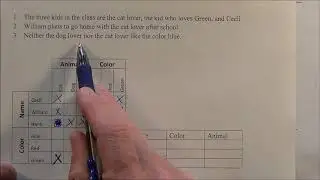 1 The three kids in the class are the cat lover, the kid who loves Green, and Cecil
2 William plans to go home with the cat lover after school
3 Neither the dog lover nor the cat lover like the color blue.
Animal Color
Name
Cecil
William
Color
Red
Green
Color Animal